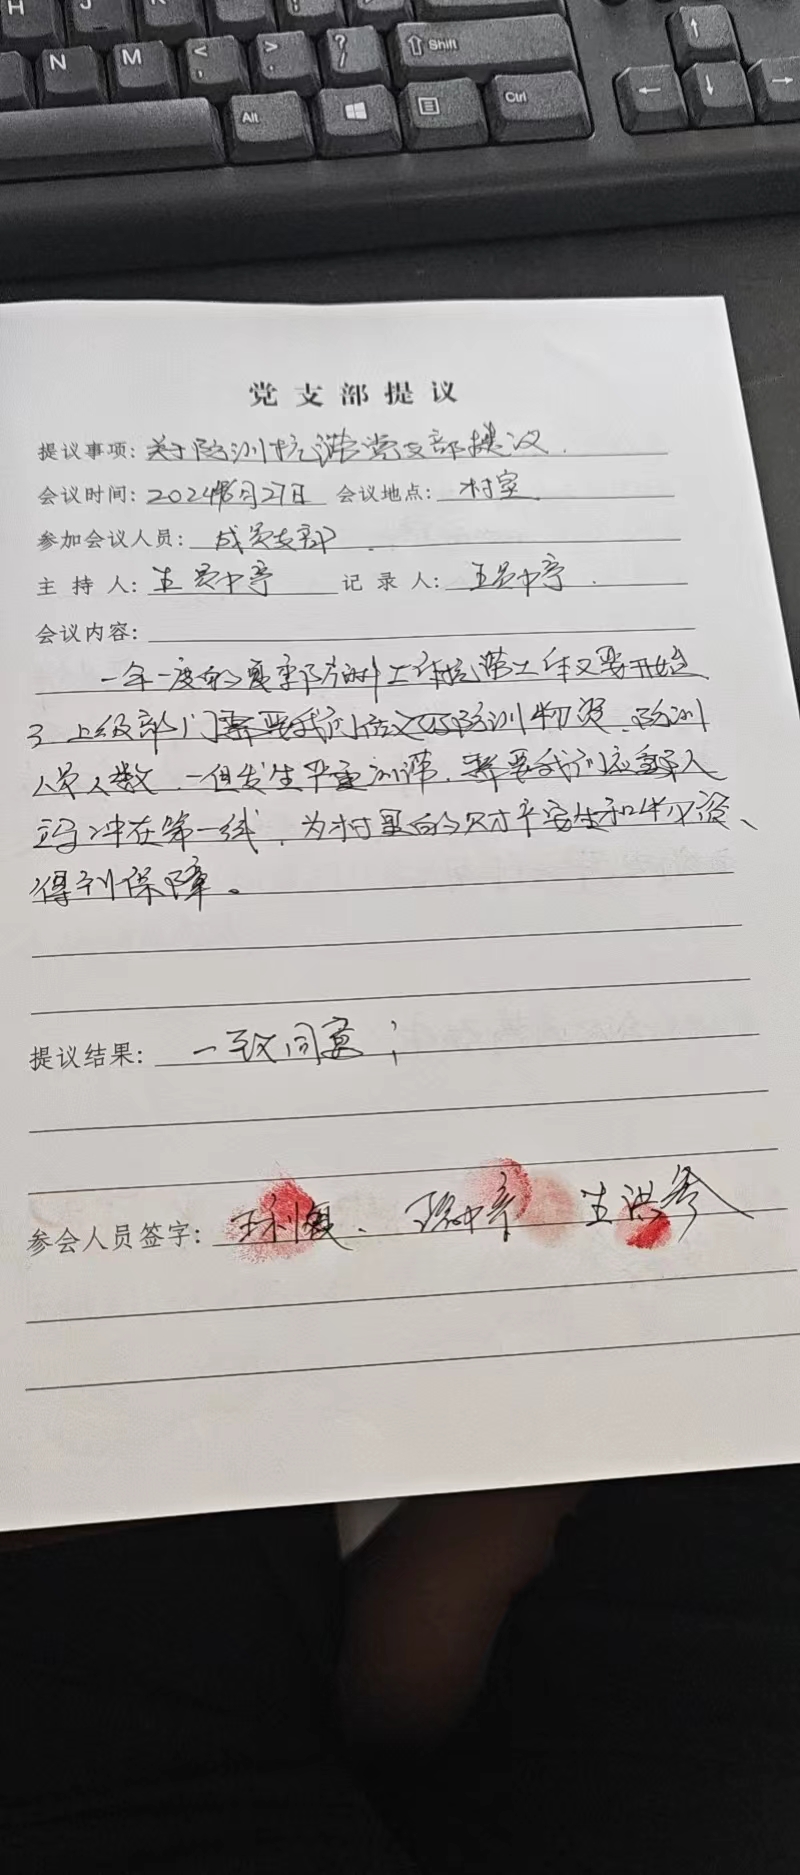 H J K
N M < , > . ? / Shift
Alt Ctrl
党支部提议
提议事项: 关于防汛抗涝党支部提议.
会议时间: 2024年6月27日 会议地点: 村室
参加会议人员: 成员支部
主持人: 王 记录人: 王
会议内容:
一年一度的夏季防汛工作抗涝工作又要开始
了 上级部门需要我们防汛物资、防汛
人员人数, 一但发生严重汛涝, 需要我们
冲在第一线, 为村里的平安生和
得到保障。
提议结果: 一致同意;
参会人员签字: 王利、王 王洪